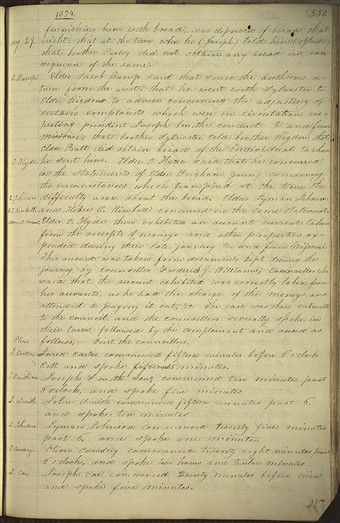 1834.
furnishing him with bread, was deprived of bread that
night: that at the time when he (Joseph) told him
that brother Parley did not obtain any bread in con
sequence of the same.
Elder Jacob Bump said that since the brethren's re
turn from the west, that he went with Sylvester to
Elder Rigdon to advise concerning the adjusting of
certain complaints which were in circulation res
pecting president Joseph Smith's conduct to and from
Missouri, that brother Sylvester told brother Rigdon that
Elder Pratt did obtain bread of the individual to whom
he sent him. Elder O. Hyde said that he concurred
in the statements of Elder Brigham Young concerning
the circumstances which transpired at the time the
difficulty arose about the bread. Elders Lyman Johnson
and Heber C. Kimball concurred in the same statement.
Elder O. Hyde then exhibited an account current taken
from the receipts of moneys and other properties ex
pended during their late journey to and from Missouri.
This account was taken from documents kept during the
journey by counsellor Frederick G. Williams. Counsellor
said that the account exhibited was correctly taken from
his accounts, as he had the charge of the money and
attended to paying it out, &c. The case was then submitted
to the council and the counsellors severally spoke in
their turn, followed by the complainant and accused as
follows: First the counsellors.
Jared Carter commenced fifteen minutes before 6 o'clock
and spoke fifteen minutes.
Joseph Smith Sen. commenced ten minutes past
o'clock, and spoke five minutes
John Smith commenced fifteen minutes past 6,
and spoke ten minutes
Lyman Johnson commenced twenty five minutes
past 6, and spoke one minute.
Oliver Cowdery commenced twenty eight minutes past
6 o'clock, and spoke two hours and twelve minutes
Joseph Coe commenced twenty minutes before nine
and spoke five minutes.